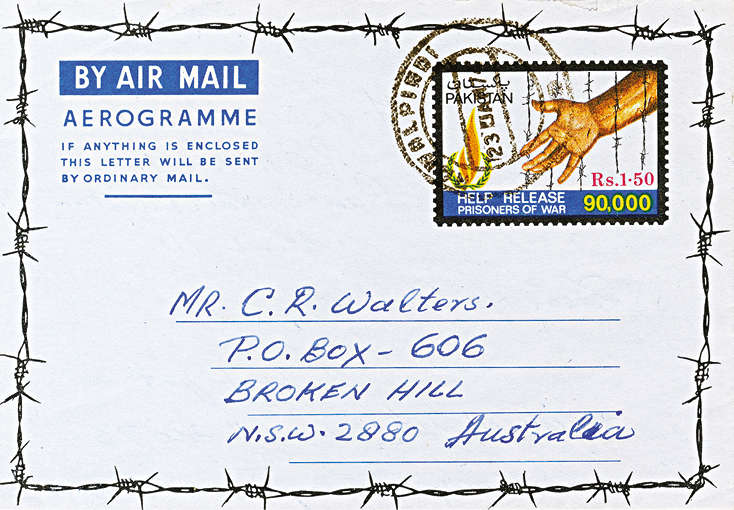 BY AIR MAIL
AEROGRAMME
IF ANYTHING IS ENCLOSED
THIS LETTER WILL BE SENT
BY ORDINARY MAIL.
پاکستان
PAKISTAN
Rs.1·50
HELP RELEASE
PRISONERS OF WAR
90,000
MR. C. R. Walters.
P.O. BOX - 606
BROKEN HILL
N.S.W. 2880 Australia